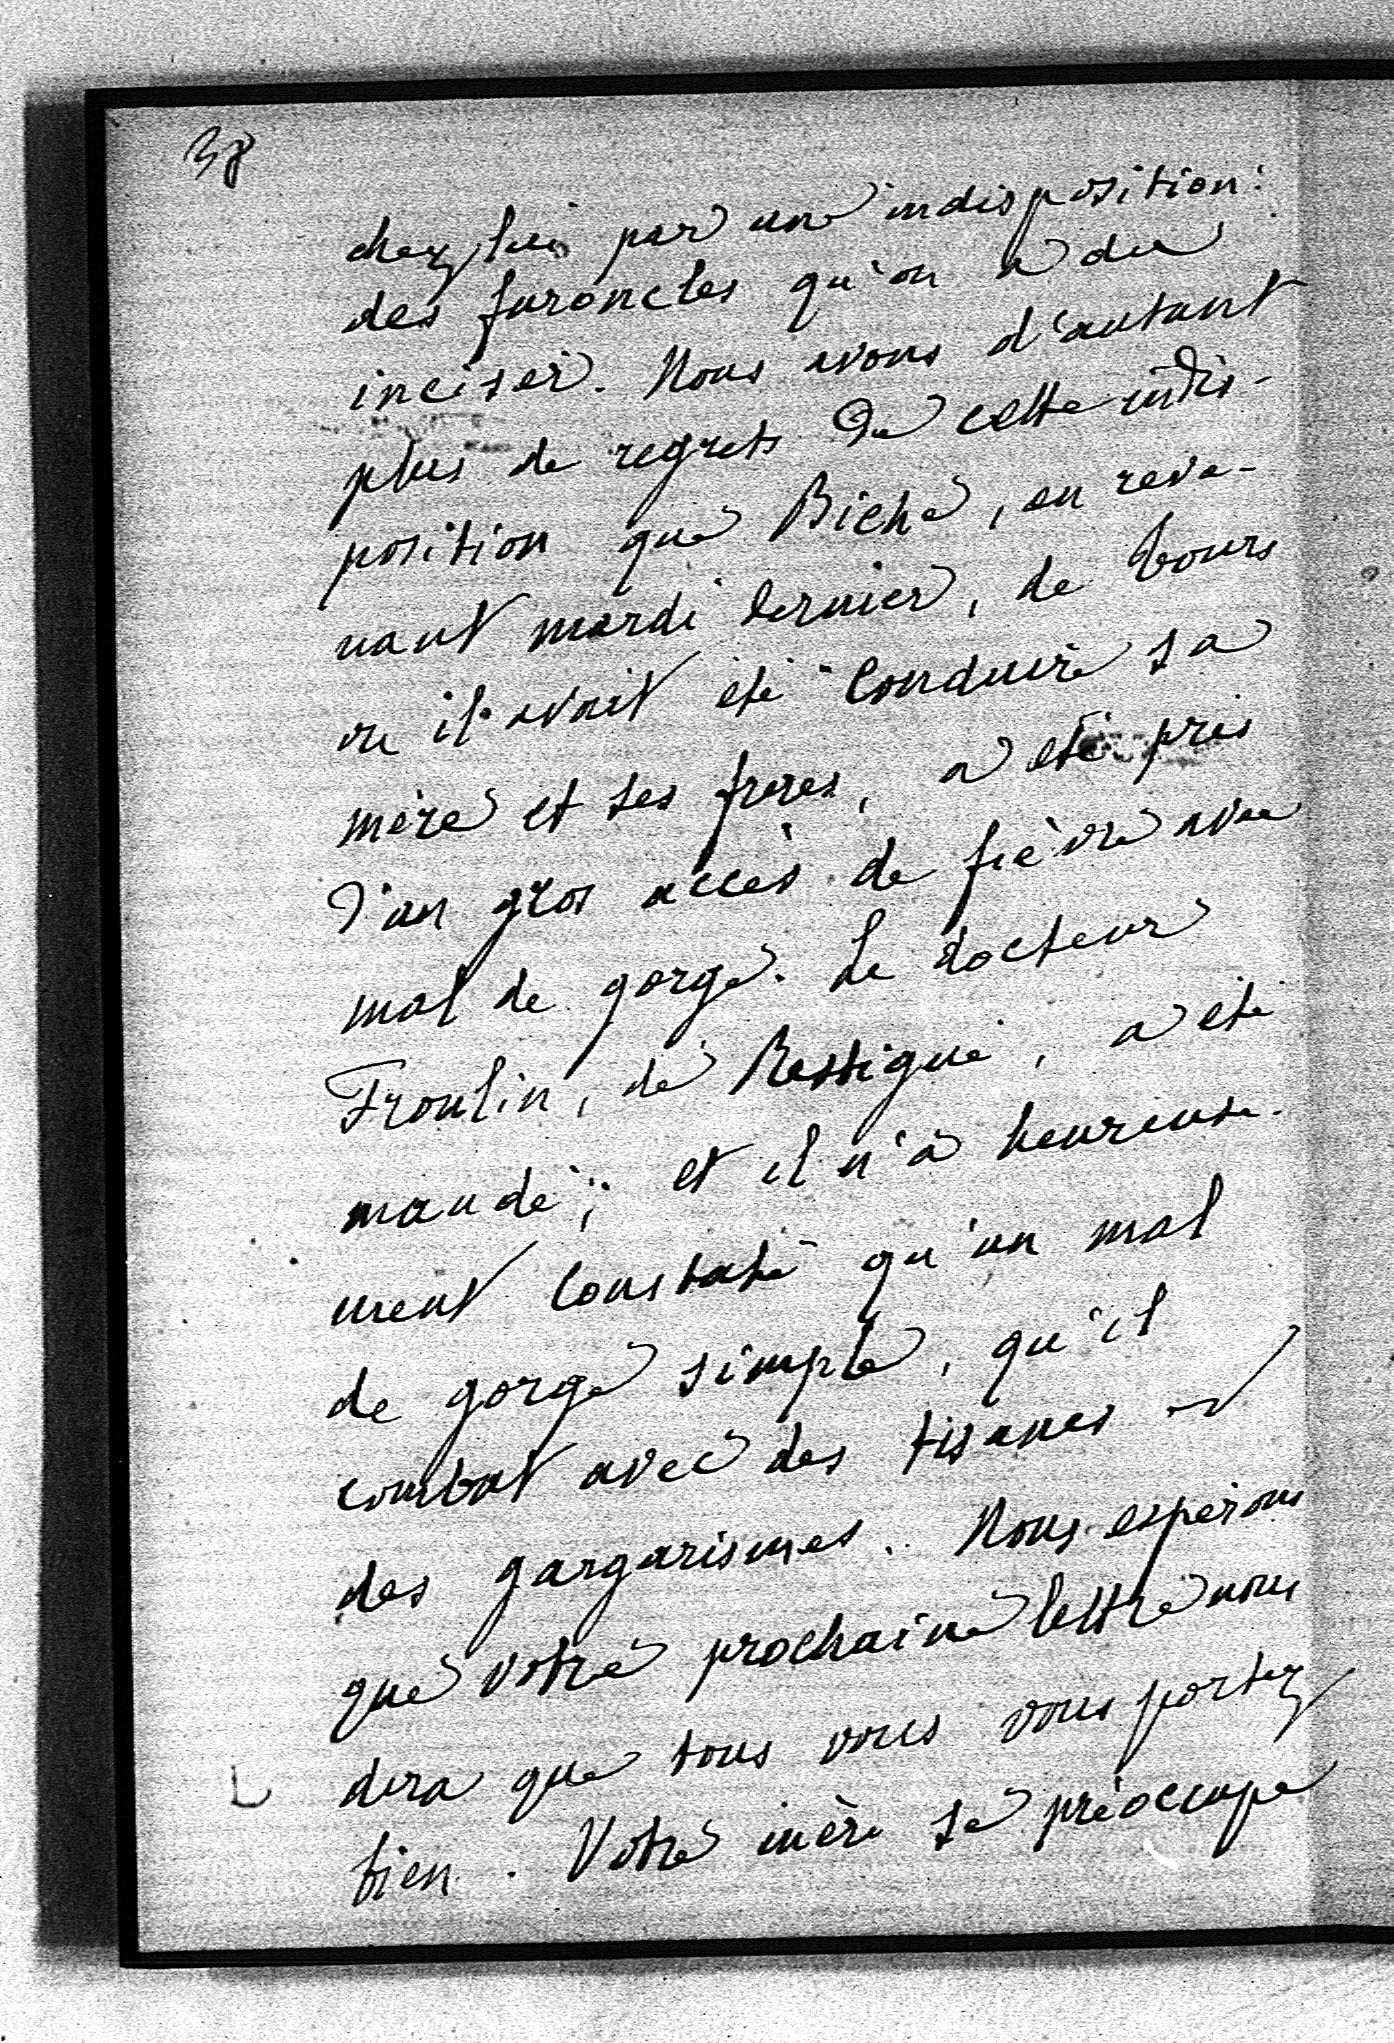 38
chez lui par une indisposition :
des furoncles qu'on a du
inciser. Nous avons d'autant
plus de regrets de cette indis-
position que Biche, en reve-
nant mardi dernier, de Tours
ou il avait été conduire sa
mère et ses freres, a eté pris
d'un gros accès de fièvre avec
mal de gorge. Le docteur
Froulin, de Restigné, a eté
mandé ; et il n'a heureuse-
ment constaté qu'un mal
de gorge simple, qu'il
combat avec des tisanes et
des gargarismes. Nous espérons
que votre prochaine lettre nous
dira que tous vous vous portez
bien. Votre mère se préoccupe